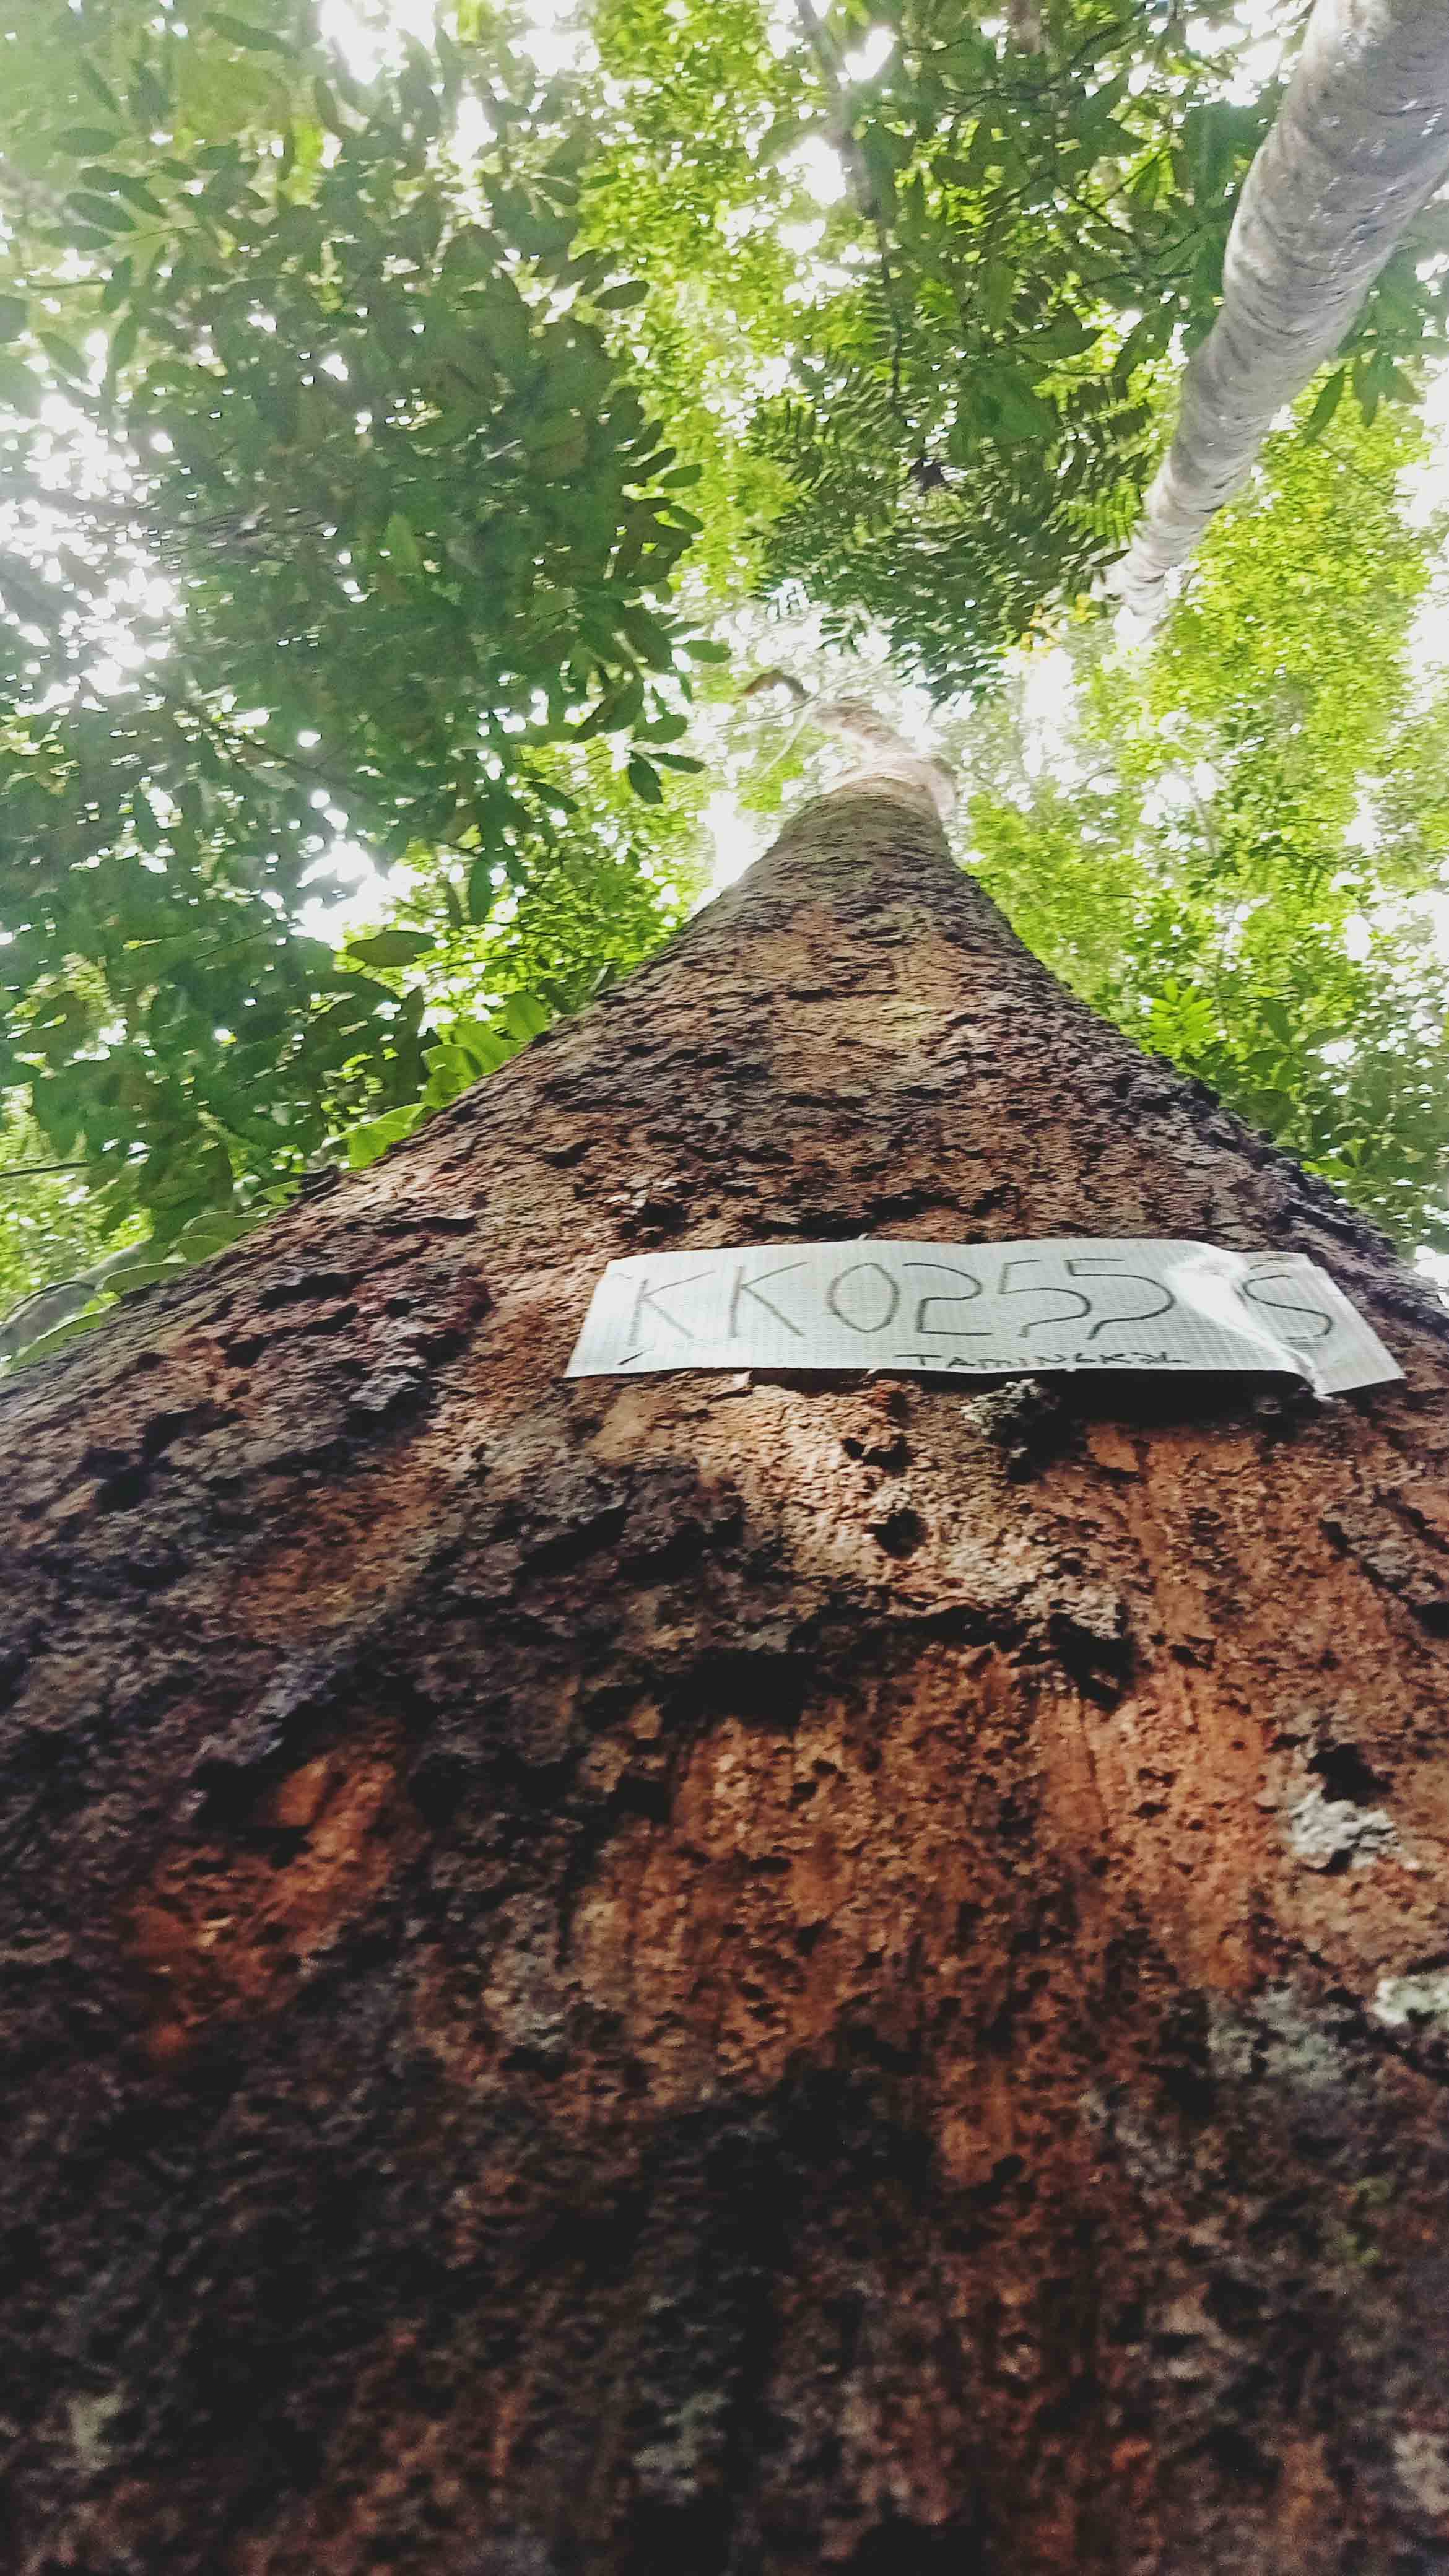 KK0255 S
TAMINGKAL